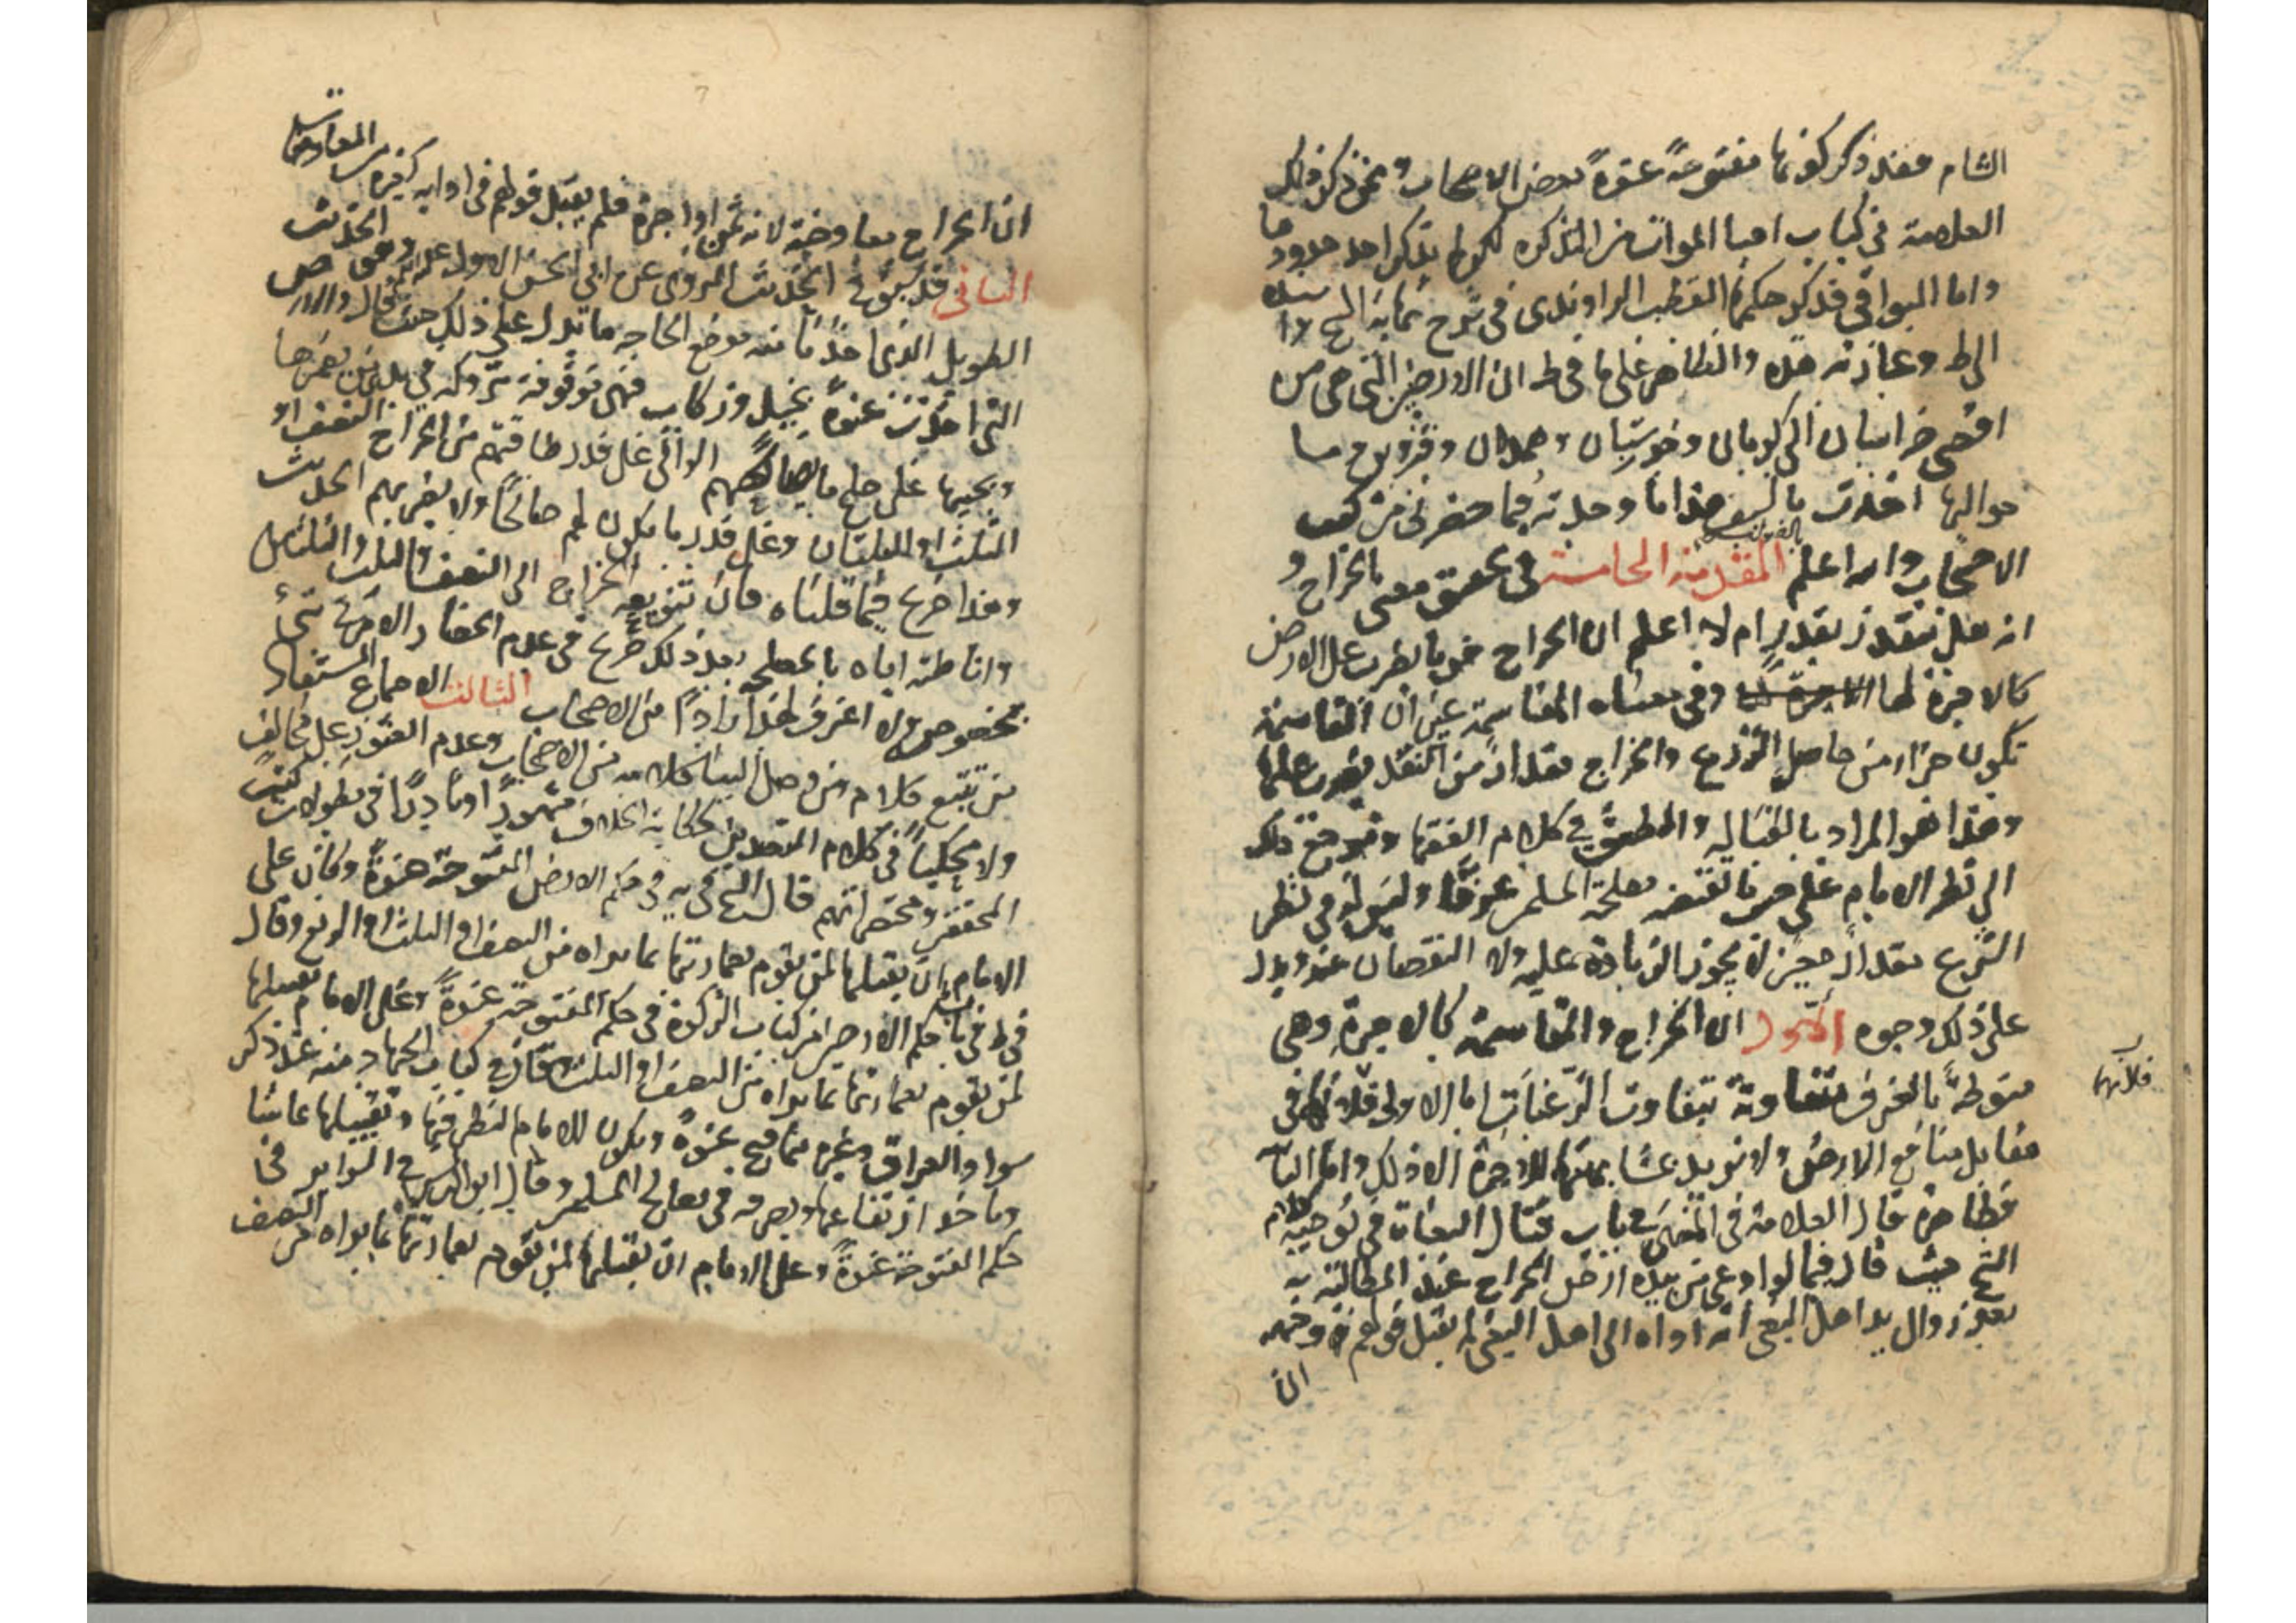 الشام فقد ذكر كونها مفتوحة عنوة بعض الاصحاب وممن ذكر ذلك
العلامة في كتاب احيا الموات من التذكره لكن لم يذكر احد حدودها
واما البواقي فذكر حكمها القطب الراوندي في شرح نهاية الشيخ
الى ط وعبارته هذه والظاهر على ما في ط ان الارضين التي هي من
اقصى خراسان الى كرمان وخوزستان وهمدان وقزوين وما
حواليها اخذت بالسيف هذا ما وجدته فيما حضرني من كتب
الاصحاب والله اعلم المقدمة الخامسة في تحقيق معنى الخراج و
انه هل يتقدر بقدر ام لا اعلم ان الخراج هو ما يضرب على الارض
كالاجرة لها وفي معناه المقاسمة غير ان المقاسمة
تكون جزا من حاصل الزرع والخراج مقدار من النقد يضرب عليها
وهذا هو المراد بالقبالة والطسق في كلام الفقها ومرجع ذلك
الى نظر الامام على حسب ما تقتضيه مصلحة المسلمين عرفا وليس له في نظر
الشرع مقدار معين لا يجوز الزيادة عليه ولا النقصان عنه ويدل
على ذلك وجوه الاول ان الخراج والمقاسمة كالاجرة وهي
منوطة بالعرف متفاوتة بتفاوت الرغبات اما الاولى فلانهما في
فلانهما
مقابل منافع الارض ولا نريد بمشابهتها للاجرة الا ذلك واما الثانية
فظاهرة قال العلامة في المنتهى في باب قتال البغاة في توجيه كلام
الشيخ حيث قال فيما لو ادعى من بيده ارض الخراج عند المطالبة به
بعد زوال يد اهل البغي انه اداه الى اهل البغي لم يقبل قولهم وجهه
ان
ان الخراج معاوضة لانه ثمن او اجرة فلم يقبل قولهم في ادائه كغيره من المعاوضات
الثاني قد سبق في الحديث المروي عن ابي الحسن الاول عليه السلام وهو الحديث
الطويل الذي اخذنا منه موضع الحاجة ما تدل على ذلك حيث قال والارض
التي اخذت عنوة بخيل وركاب فهي موقوفة متروكة في يد من يعمرها
ويحييها على صلح ما يصالحهم الوالي على قدر طاقتهم من الخراج النصف او
الثلث او الثلثان وعلى قدر ما يكون لهم صالحا ولا يضر بهم الحديث
وهذا صريح فيما قلناه فان تنويعه الخراج الى النصف والثلث والثلثين
واناطته اياه بالمصلحة بعد ذلك صريح في عدم انحصار الامر في شيء
بخصوصه ولا اعرف لهذا رادا من الاصحاب الثالث الاجماع المستفاد
من تتبع كلام من وصل الينا كلامه من الاصحاب وعدم العثور على مخالف
ولا محكيا في كلام المتصدين لحكاية الخلاف مشهورا او نادرا في مطولات كتب
المحققين ومختصراتهم قال الشيخ في يه في حكم الارض المفتوحة عنوة وكان على
الامام ان يقبلها لمن يقوم بعمارتها بما يراه من النصف او الثلث او الربع وقال
في ط في باب حكم الارضين من كتاب الزكوة في حكم المفتوحة عنوة وعلى الامام تقبيلها
لمن يقوم بعمارتها بما يراه من النصف او الثلث وقال في كتاب الجهاد منه عند ذكر
سواد العراق وغيره مما فتح عنوة ويكون للامام النظر فيها وتقبيلها بما شا
وياخذ ارتفاعها ويصرفه في مصالح المسلمين وقال ابن ادريس في السرائر في
حكم المفتوحة عنوة وعلى الامام ان يقبلها لمن يقوم بعمارتها بما يراه من النصف